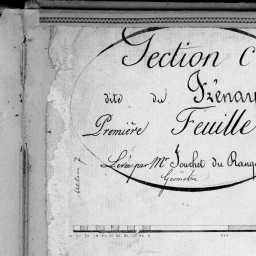 Section C
dite du Frénay
Première Feuille
Levée par Mr Fouchet du Rang
Géomètre
section 7